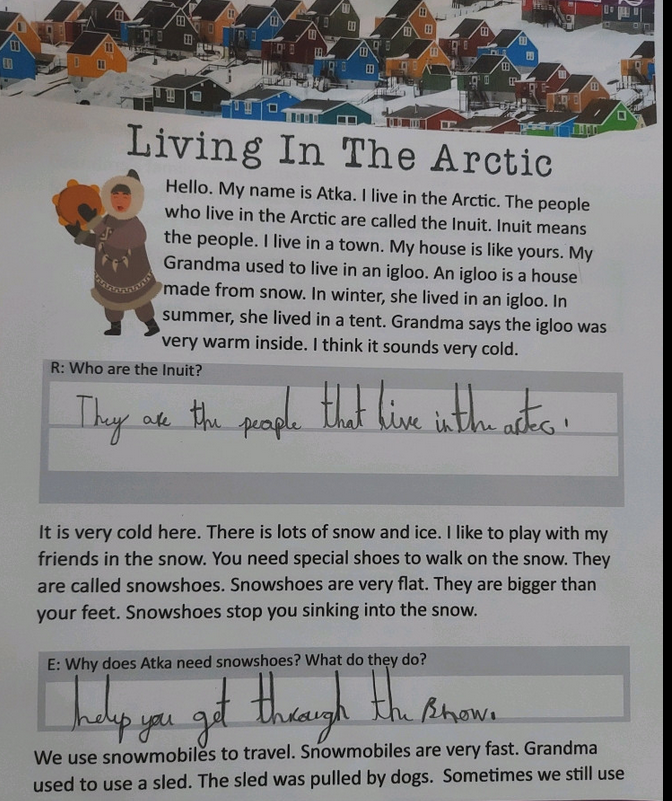 Living In The Arctic
Hello. My name is Atka. I live in the Arctic. The people
who live in the Arctic are called the Inuit. Inuit means
the people. I live in a town. My house is like yours. My
Grandma used to live in an igloo. An igloo is a house
made from snow. In winter, she lived in an igloo. In
summer, she lived in a tent. Grandma says the igloo was
very warm inside. I think it sounds very cold.
R: Who are the Inuit?
They are the people that live in the artec.
It is very cold here. There is lots of snow and ice. I like to play with my
friends in the snow. You need special shoes to walk on the snow. They
are called snowshoes. Snowshoes are very flat. They are bigger than
your feet. Snowshoes stop you sinking into the snow.
E: Why does Atka need snowshoes? What do they do?
help you get through the Snow.
We use snowmobiles to travel. Snowmobiles are very fast. Grandma
used to use a sled. The sled was pulled by dogs. Sometimes we still use